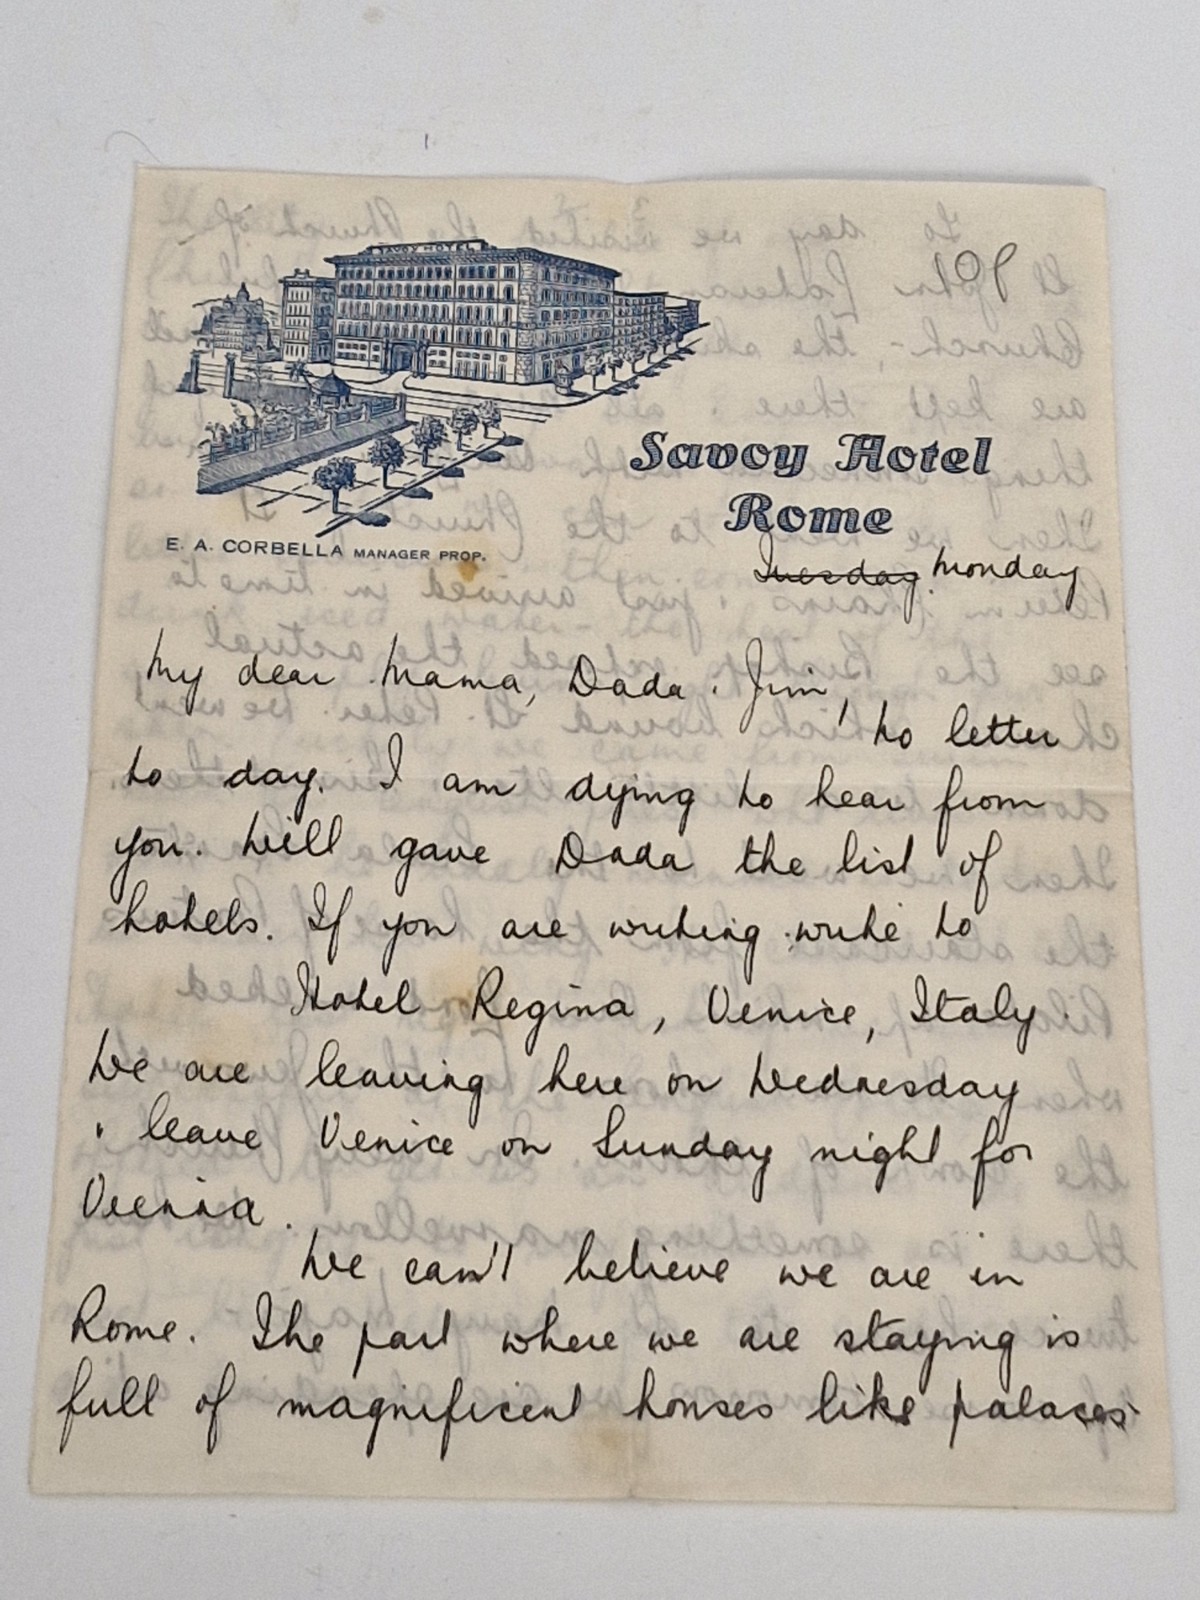 SAVOY HOTEL
Savoy Hotel
Rome
E. A. CORBELLA MANAGER PROP.
Tuesday Monday
My dear Mama, Dada & Jim,
No letter
to day. I am dying to hear from
you. Will gave Dada the list of
hotels. If you are writing write to
Hotel Regina, Venice, Italy.
We are leaving here on Wednesday
& leave Venice on Sunday night for
Vienna.
We can't believe we are in
Rome. The part where we are staying is
full of magnificent houses like palaces